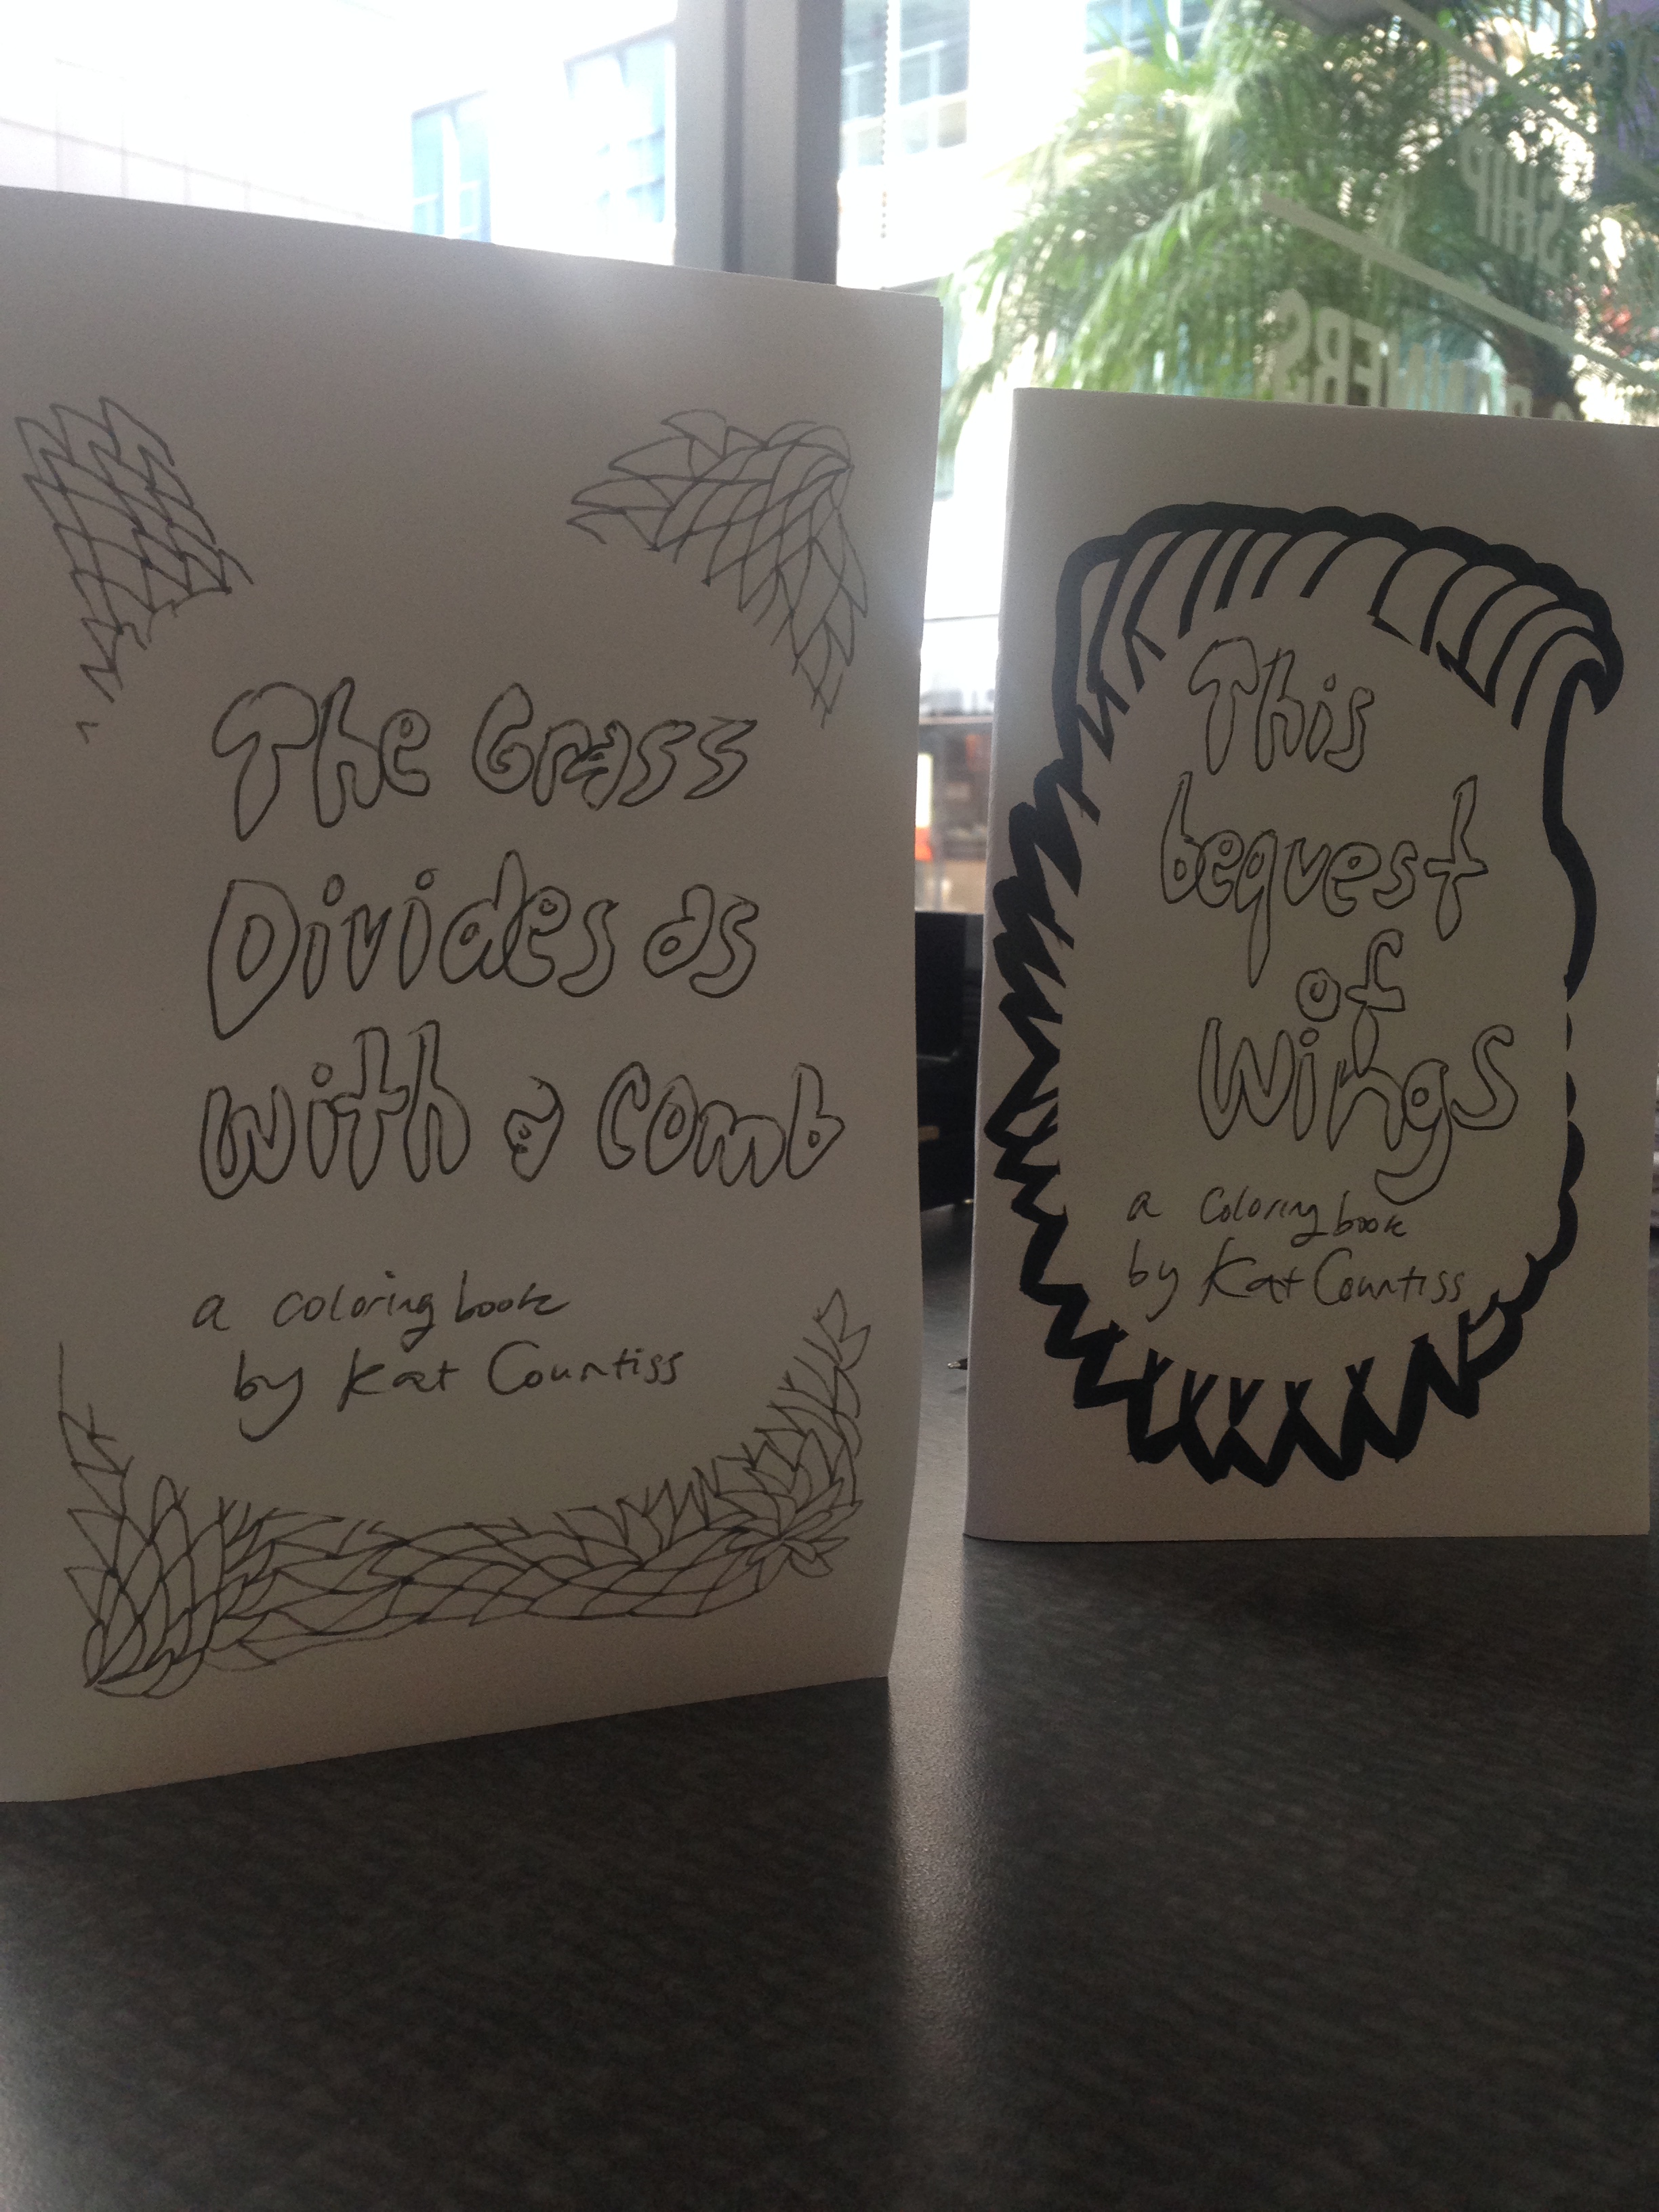 The Grass
Divides as
with a comb
a coloring book
by Kat Countiss
This
bequest
of
wings
a coloring book
by Kat Countiss
SHIP
BANNERS